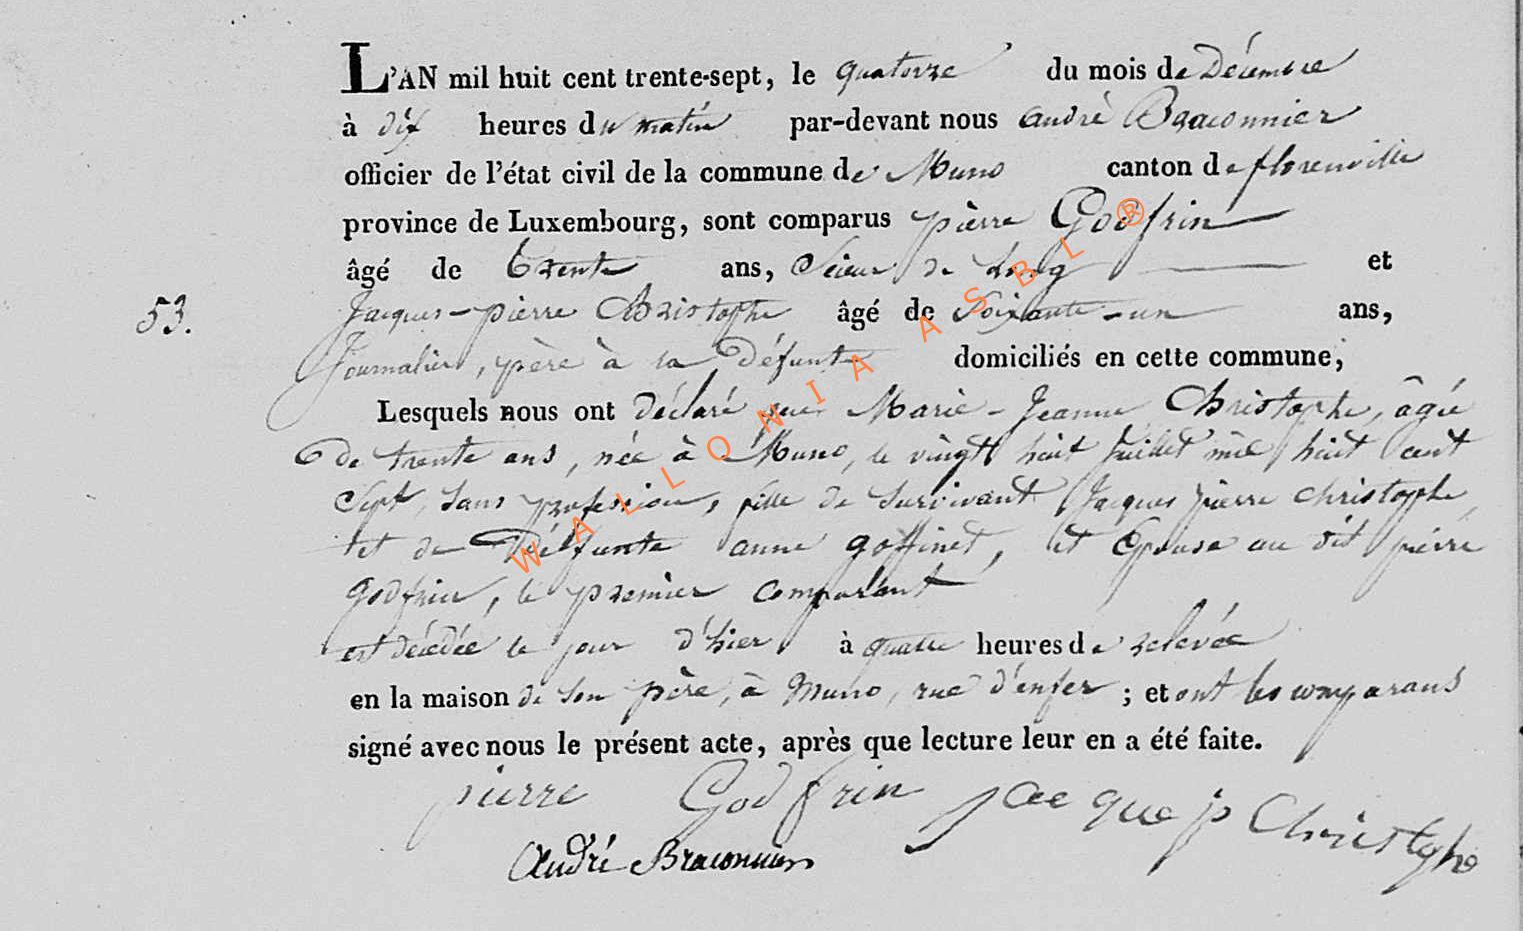 L'AN mil huit cent trente-sept, le quatorze du mois de Décembre
à dix heures du matin par-devant nous André Braconnier
officier de l'état civil de la commune de Muno canton de florenville
province de Luxembourg, sont comparus pierre Godfrin
âgé de trente ans, Scieur de long et
53. Jacques-pierre Christophe âgé de Soixante-un ans,
Journalier, père à la Défunte domiciliés en cette commune,
Lesquels nous ont déclaré que Marie-Jeanne Christophe, âgée
De trente ans, née à Muno, le vingt huit Juillet mil huit cent
Sept, Sans profession, fille de Survivant Jacques pierre christophe,
et de Défunte anne goffinet, et Epouse au dit pierre
godfrin, le premier comparant
est décédée le jour d'hier à quatre heures de relevée
en la maison de Son père, à Muno, rue d'enfer ; et ont les comparans
signé avec nous le présent acte, après que lecture leur en a été faite.
pierre Godfrin jacque p Christophe
André Braconnier
WALLONIA ASBL ®